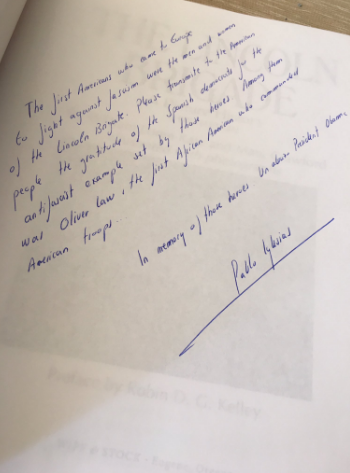 The first Americans who came to Europe
to fight against fascism were the men and women
of the Lincoln Brigade. Please transmite to the American
people the gratitude of the Spanish democrats for the
antifascist example set by those heroes. Among them
was Oliver Law, the first African American who commanded
American troops...
In memory of those heroes. Un abrazo President Obama,
Pablo Iglesias
Preface by Robin D. G. Kelley